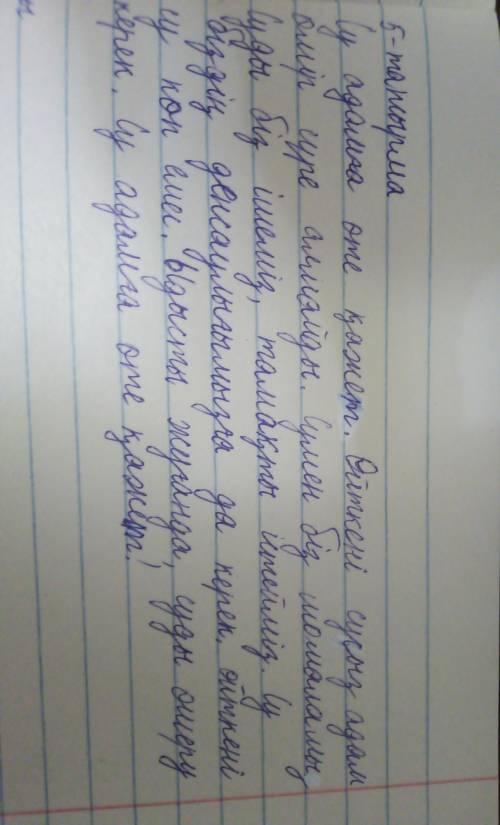 5-тапсырма
Су адамға өте қажет. Өйткені сусыз адам
өмір сүре алмайды. Сумен біз шомыламыз,
суды біз ішеміз, тамақты істейміз. Су
біздің денсаулығымызға да керек. Өйткені
су көп емес. Ыдысты жуғанда, суды өшеру
керек. Су адамға өте қажет!